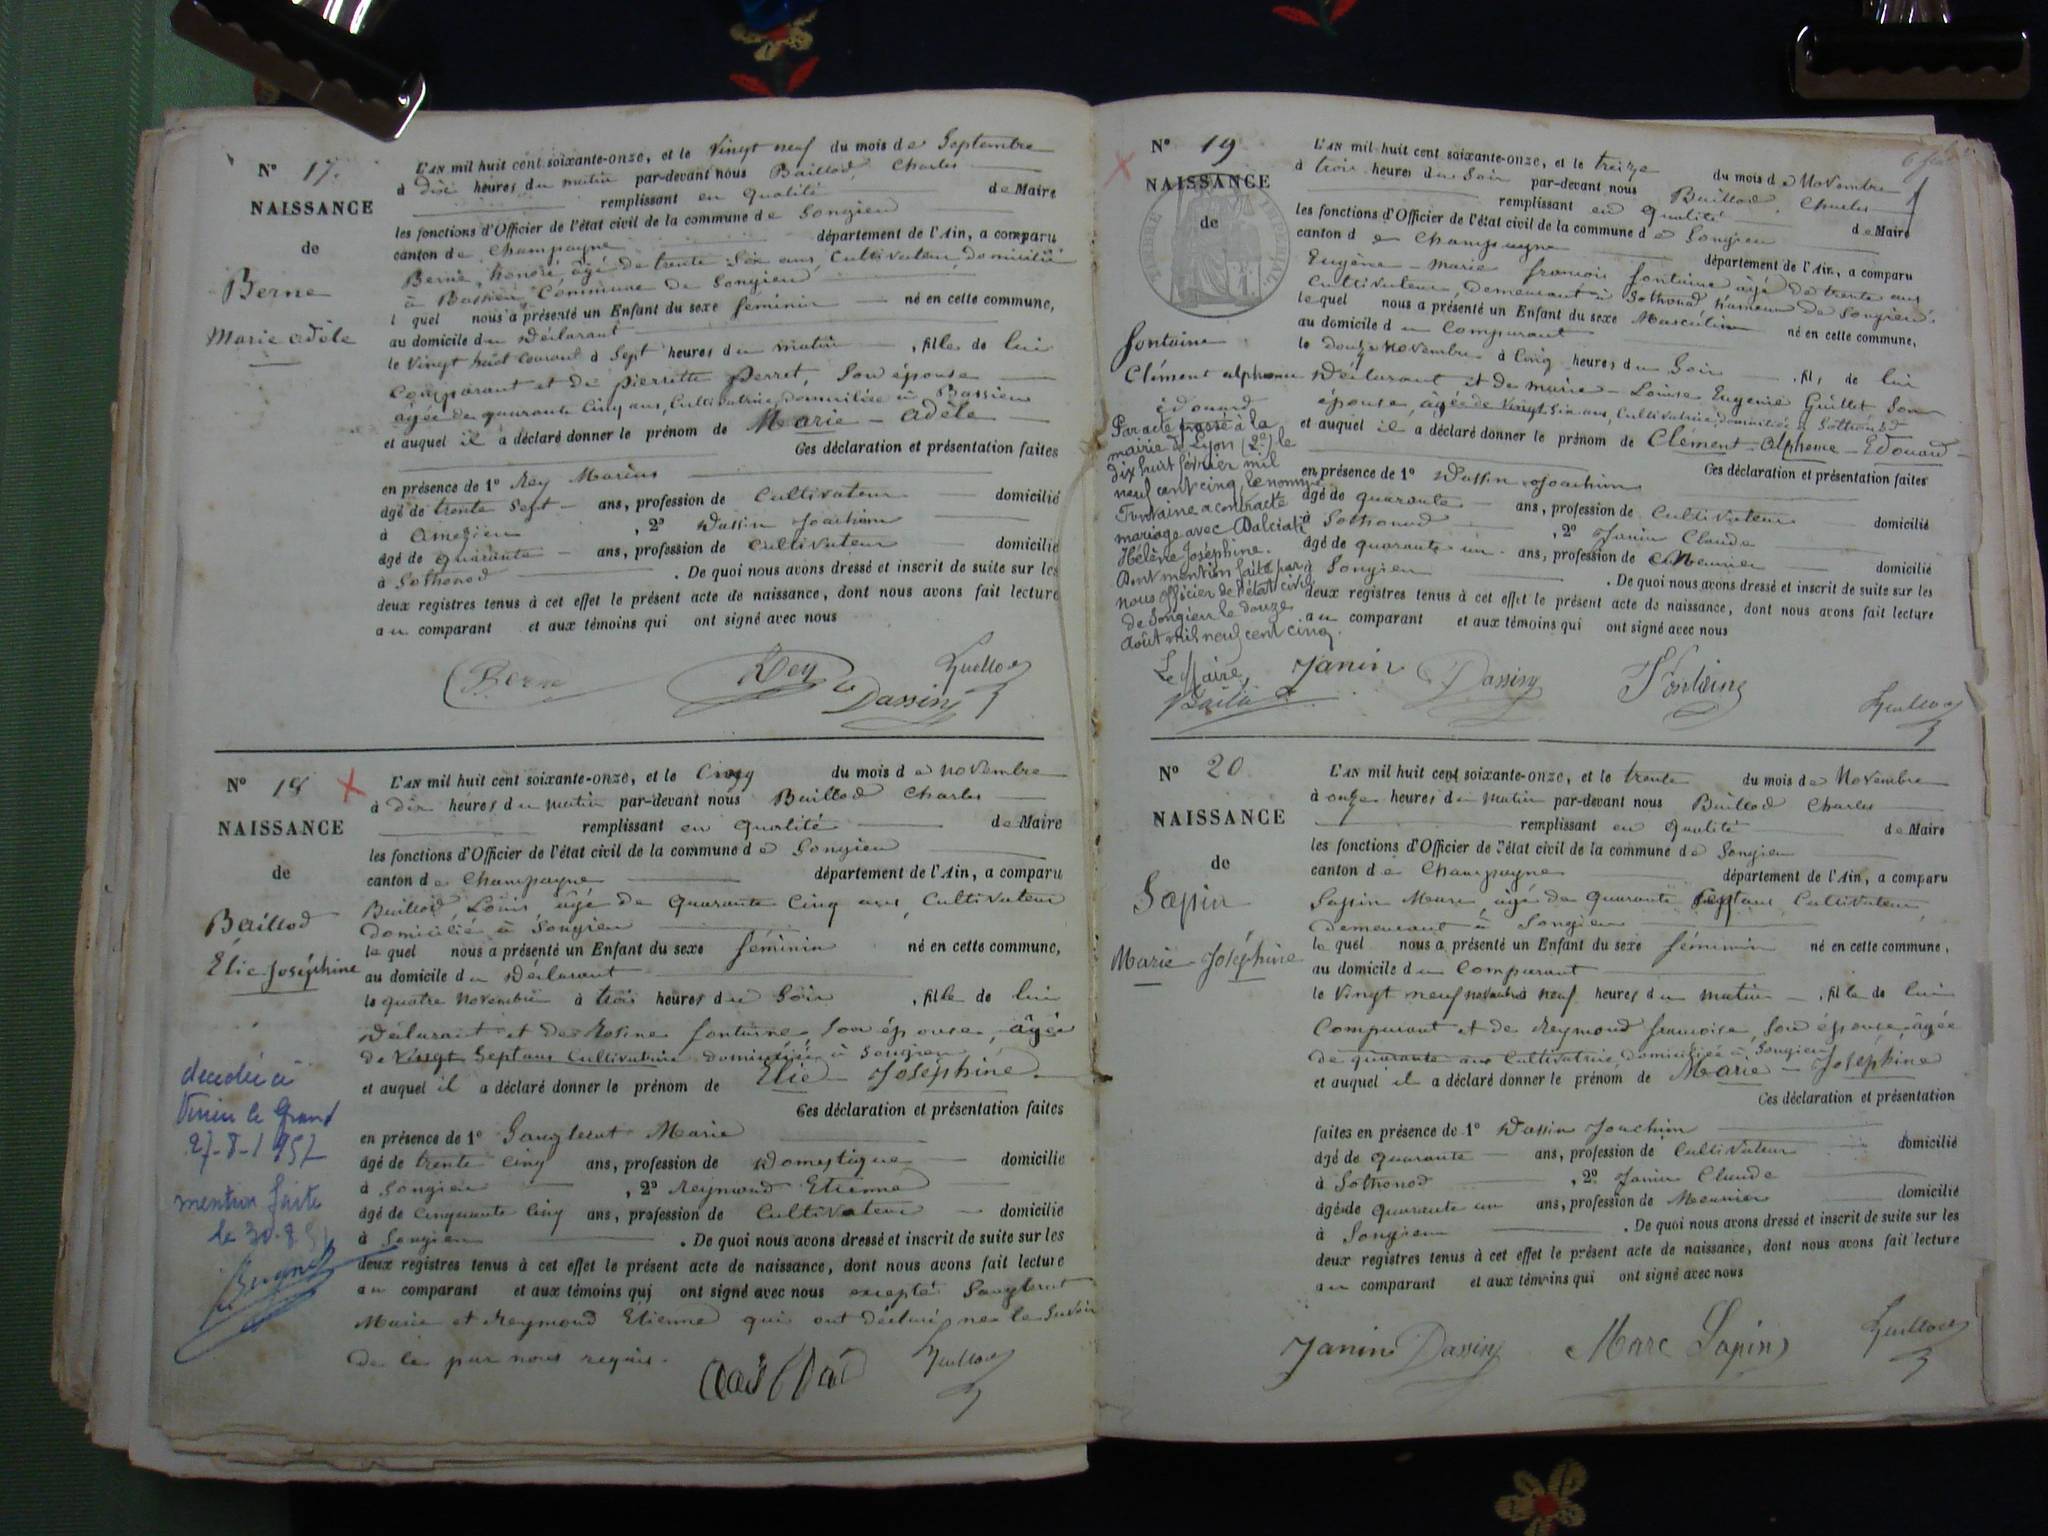 N° 17.
NAISSANCE
de
Berne
Marie Adèle
L'AN mil huit cent soixante-onze, et le Vingt neuf du mois de Septembre
à dix heures du matin par-devant nous Baillod Charles
remplissant en qualité de Maire
les fonctions d'Officier de l'état civil de la commune de Songieu
canton de Champagne département de l'Ain, a comparu
Berne, honoré, âgé de trente Six ans, Cultivateur, domicilié
à Bassieu, Commune de Songieu
l quel nous a présenté un Enfant du sexe féminin né en cette commune,
au domicile du Déclarant
le Vingt huit courant à Sept heures du matin, fille de lui
Comparant et de Pierrette Perret, Son épouse
âgée de quarante Cinq ans, Cultivatrice, domiciliée à Bassieu
et auquel il a déclaré donner le prénom de Marie - Adèle
Ces déclaration et présentation faites
en présence de 1° Rey Marius
âgé de trente Sept ans, profession de Cultivateur domicilié
à Ameyzieu, 2° Dassin Joachim
âgé de quarante ans, profession de Cultivateur domicilié
à Sothonod. De quoi nous avons dressé et inscrit de suite sur les
deux registres tenus à cet effet le présent acte de naissance, dont nous avons fait lecture
au comparant et aux témoins qui ont signé avec nous
Berne Rey Dassin
N° 18
NAISSANCE
de
Baillod
Élie-Joséphine
décédée à
Virieu le Grand
27-8-1957
mention faite
le 30-8
L'AN mil huit cent soixante-onze, et le Cinq du mois de novembre
à dix heures du matin par-devant nous Baillod Charles
remplissant en qualité de Maire
les fonctions d'Officier de l'état civil de la commune de Songieu
canton de Champagne département de l'Ain, a comparu
Baillod, Louis, âgé de Quarante Cinq ans, Cultivateur
domicilié à Songieu
le quel nous a présenté un Enfant du sexe féminin né en cette commune,
au domicile du Déclarant
le quatre Novembre à trois heures du Soir, fille de lui
Déclarant et de Rosine fontaine, Son épouse, âgée
de Vingt Sept ans Cultivatrice domiciliée à Songieu
et auquel il a déclaré donner le prénom de Élie - Joséphine
Ces déclaration et présentation faites
en présence de 1° Marie
âgé de trente Cinq ans, profession de Domestique domicilié
à Songieu, 2° Reymond Etienne
âgé de Cinquante Cinq ans, profession de Cultivateur domicilié
à Songieu. De quoi nous avons dressé et inscrit de suite sur les
deux registres tenus à cet effet le présent acte de naissance, dont nous avons fait lecture
au comparant et aux témoins qui ont signé avec nous excepté
Marie et Reymond Etienne qui ont déclaré ne le Savoir
de ce par nous requis.
N° 19
NAISSANCE
de
TIMBRE IMPÉRIAL
fontaine
Clément alphonse
édouard
Par acte passé à la
mairie de Lyon (2e) le
dix huit février mil
neuf cent cinq, le nommé
Fontaine a contracté
mariage avec Dalciati
Hélène Joséphine.
Dont mention faite par
nous Officier de l'état civil
de Songieu le douze
Août mil neuf cent cinq.
Le Maire,
L'AN mil huit cent soixante-onze, et le treize du mois de Novembre
à trois heures du Soir par-devant nous Baillod, Charles
remplissant en qualité de Maire
les fonctions d'Officier de l'état civil de la commune de Songieu
canton de Champagne département de l'Ain, a comparu
Eugène - Marie françois fontaine âgé de trente ans
Cultivateur, demeurant à Sothonod hameau de Songieu
le quel nous a présenté un Enfant du sexe Masculin né en cette commune,
au domicile du Comparant
le douze novembre à Cinq heures du Soir, fils de lui
Déclarant et de Marie - Louise Eugenie Guillet Son
épouse, âgée de Vingt Six ans, Cultivatrice, domiciliée à Sothonod
et auquel il a déclaré donner le prénom de Clément - Alphonse - Édouard -
Ces déclaration et présentation faites
en présence de 1° Dassin Joachim
âgé de quarante ans, profession de Cultivateur domicilié
à Sothonod, 2° Janin Claude
âgé de quarante un ans, profession de Meunier domicilié
à Songieu. De quoi nous avons dressé et inscrit de suite sur les
deux registres tenus à cet effet le présent acte de naissance, dont nous avons fait lecture
au comparant et aux témoins qui ont signé avec nous
Janin Dassin Fontaine
N° 20
NAISSANCE
de
Sapin
Marie-Joséphine
L'AN mil huit cent soixante-onze, et le trente du mois de Novembre
à onze heures du matin par-devant nous Baillod Charles
remplissant en qualité de Maire
les fonctions d'Officier de l'état civil de la commune de Songieu
canton de Champagne département de l'Ain, a comparu
Sapin Marc, âgé de Quarante Sept ans, Cultivateur,
demeurant à Songieu
le quel nous a présenté un Enfant du sexe féminin né en cette commune,
au domicile du Comparant
le Vingt neuf novembre à neuf heures du matin, fille de lui
Comparant et de Reymond françoise, Son épouse, âgée
de quarante ans Cultivatrice domiciliée à Songieu
et auquel il a déclaré donner le prénom de Marie - Joséphine
Ces déclaration et présentation
faites en présence de 1° Dassin Joachim
âgé de quarante ans, profession de Cultivateur domicilié
à Sothonod, 2° Janin Claude
âgé de quarante un ans, profession de Meunier domicilié
à Songieu. De quoi nous avons dressé et inscrit de suite sur les
deux registres tenus à cet effet le présent acte de naissance, dont nous avons fait lecture
au comparant et aux témoins qui ont signé avec nous
Janin Dassin Marc Sapin